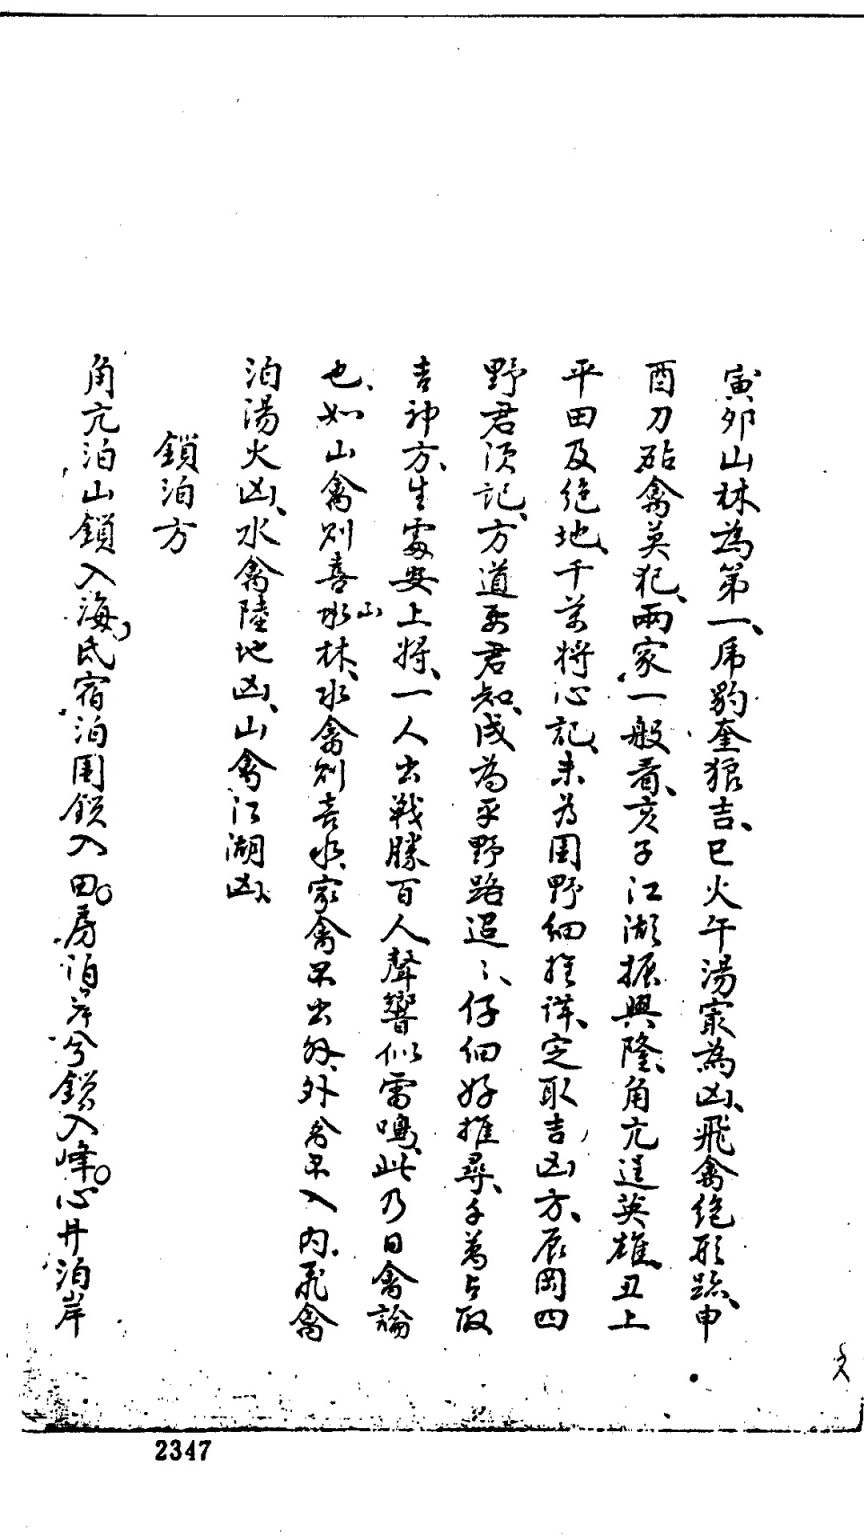 寅卯山林為第一、虎豹奎狼吉、巳火午湯最為凶、飛禽絕形踪、申
酉刀砧禽莫犯、兩家一般看、亥子江湖振興隆、角亢逞英雄、丑上
平田及絕地、千萬將心記、未為園野細推詳、定取吉凶方、辰岡四
野君須記、方道要君知、戌為平野路迢〻、仔細好推尋、千萬占取
吉神方、生處安上將、一人出戰勝百人、聲響似雷鳴、此乃日禽論
也、如山禽則喜山林、水禽則喜水、家禽不出外、外禽不入內、飛禽
泊湯火凶、水禽陸地凶、山禽江湖凶、
鎖泊方
角亢泊山鎖入海、氐宿泊園鎖入田。房泊岸兮鎖入峰。心井泊岸
2347